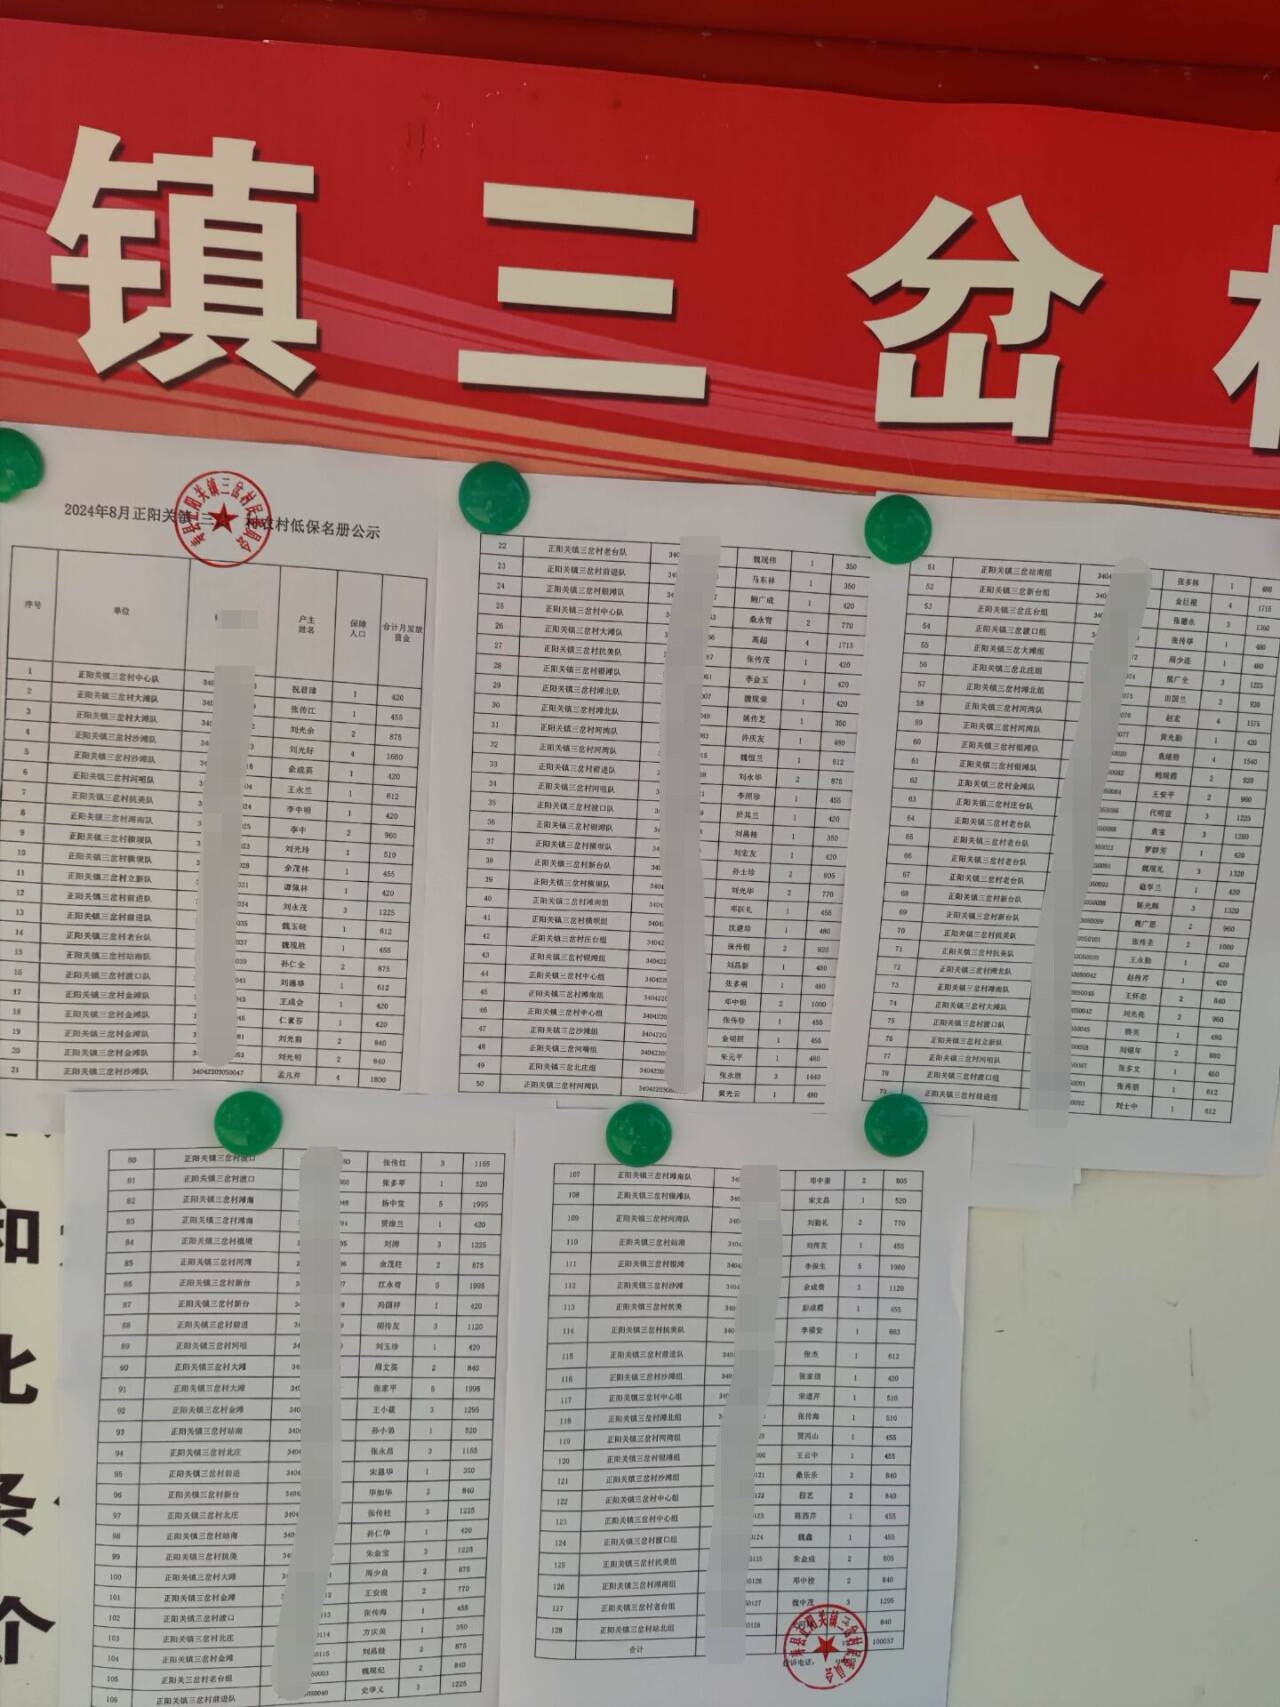 镇三岔
2024年8月正阳关镇三 村农村低保名册公示
序号 单位 户主姓名 保障人口 合计月发放资金
1 正阳关镇三岔村中心队 祝君瑞 1 420
2 正阳关镇三岔村大滩队 张传江 1 455
3 正阳关镇三岔村大滩队 刘光余 2 875
4 正阳关镇三岔村沙滩队 刘光好 4 1680
5 正阳关镇三岔村沙滩队 余成英 1 420
6 正阳关镇三岔村河咀队 王永兰 1 612
7 正阳关镇三岔村抗美队 李中明 1 420
8 正阳关镇三岔村滩南队 李中 2 960
9 正阳关镇三岔村横坝队 刘光玲 1 510
10 正阳关镇三岔村横坝队 余茂林 1 455
11 正阳关镇三岔村立新队 谭佩林 1 420
12 正阳关镇三岔村前进队 刘永茂 3 1225
13 正阳关镇三岔村前进队 魏玉晓 1 612
14 正阳关镇三岔村老台队 魏现胜 1 455
15 正阳关镇三岔村站南队 孙仁全 2 875
16 正阳关镇三岔村渡口队 1 612
17 正阳关镇三岔村金滩队 王成会 1 420
18 正阳关镇三岔村金滩队 1 420
19 正阳关镇三岔村金滩队 2 840
20 正阳关镇三岔村金滩队 刘光明 2 840
21 正阳关镇三岔村沙滩队 34042203050047 孟凡芹 4 1800
22 正阳关镇三岔村老台队 340 魏现伟 1 350
23 正阳关镇三岔村前进队 马东林 1 350
24 正阳关镇三岔村银滩队 鲍广成 1 420
25 正阳关镇三岔村中心队 桑永育 2 770
26 正阳关镇三岔村大滩队 高超 4 1715
27 正阳关镇三岔村抗美队 张传茂 1 420
28 正阳关镇三岔村银滩队 李金玉 1 420
29 正阳关镇三岔村滩北队 魏现荣 1 420
30 正阳关镇三岔村滩北队 姚传芝 1 350
31 正阳关镇三岔村河湾队 许庆友 1 480
32 正阳关镇三岔村河湾队 魏恒兰 1 612
33 正阳关镇三岔村前进队 刘永华 2 875
34 正阳关镇三岔村河咀队 李照珍 1 455
35 正阳关镇三岔村渡口队 1 420
36 正阳关镇三岔村银滩队 刘昌格 1 350
37 正阳关镇三岔村横坝队 刘宏友 1 420
38 正阳关镇三岔村新台队 孙士珍 2 805
39 正阳关镇三岔村横坝队 刘光华 2 770
40 正阳关镇三岔村滩南组 邓跃礼 1 455
41 正阳关镇三岔村横坝组 沈建珍 1 480
42 正阳关镇三岔村庄台组 张传银 2 920
43 正阳关镇三岔村银滩组 刘昌新 1 480
44 正阳关镇三岔村中心组 张多明 1 480
45 正阳关镇三岔村滩南组 邓中明 2 1000
46 正阳关镇三岔村中心组 张传珍 1 455
47 正阳关镇三岔沙滩组 金明任 1 455
48 正阳关镇三岔河嘴组 朱元平 1 480
49 正阳关镇三岔北庄组 张永胜 3 1440
50 正阳关镇三岔村河湾队 黄光云 1 480
51 正阳关镇三岔站南组 3404 张多林 1 480
52 正阳关镇三岔新台组 金巨根 4 1715
53 正阳关镇三岔庄台组 张德永 3 1360
54 正阳关镇三岔渡口组 张传华 1 480
55 正阳关镇三岔大滩组 周少连 1 480
56 正阳关镇三岔北庄组 熊广全 3 1225
57 正阳关镇三岔滩北组 田国兰 2 920
58 正阳关镇三岔村河湾队 赵宏 4 1575
59 正阳关镇三岔村河湾队 黄光勤 1 420
60 正阳关镇三岔村银滩队 4 1540
61 正阳关镇三岔村银滩队 鲍现霞 2 920
62 正阳关镇三岔村金滩队 王安平 2 960
63 正阳关镇三岔村庄台队 代明宣 3 1225
64 正阳关镇三岔村老台队 袁宝 3 1260
65 正阳关镇三岔村老台队 罗群芳 1 420
66 正阳关镇三岔村老台队 魏现礼 3 1320
67 正阳关镇三岔村老台队 1 420
68 正阳关镇三岔村新台队 3 1320
69 正阳关镇三岔村新台队 魏广思 2 960
70 正阳关镇三岔村抗美队 张传圣 2 1000
71 正阳关镇三岔村抗美队 王永勤 1 420
72 正阳关镇三岔村滩北队 1 420
73 正阳关镇三岔村滩南队 王怀忠 2 840
74 正阳关镇三岔村大滩队 刘光亮 2 960
75 正阳关镇三岔村渡口队 1 480
76 正阳关镇三岔村立新队 刘银年 2 880
77 正阳关镇三岔村河咀队 张多文 1 480
78 正阳关镇三岔村渡口组 1 612
79 正阳关镇三岔村前进组 刘士中 1 612
80 正阳关镇三岔村渡口 张传红 3 1155
81 正阳关镇三岔村渡口 张多琴 1 520
82 正阳关镇三岔村滩南 杨中堂 5 1995
83 正阳关镇三岔村滩南 贾维兰 1 420
84 正阳关镇三岔村横坝 刘涛 3 1225
85 正阳关镇三岔村河湾 余茂柱 2 875
86 正阳关镇三岔村新台 江永育 5 1995
87 正阳关镇三岔村新台 冯国祥 1 420
88 正阳关镇三岔村前进 胡传友 3 1120
89 正阳关镇三岔村河咀 刘玉珍 1 420
90 正阳关镇三岔村大滩 周文英 2 840
91 正阳关镇三岔村大滩 张家平 5 1995
92 正阳关镇三岔村金滩 王小龙 3 1295
93 正阳关镇三岔村站南 孙小弟 1 520
94 正阳关镇三岔村北庄 张永昌 3 1155
95 正阳关镇三岔村前进 宋恩华 1 350
96 正阳关镇三岔村新台 毕加华 2 840
97 正阳关镇三岔村北庄 张传柱 3 1225
98 正阳关镇三岔村站南 孙仁华 1 420
99 正阳关镇三岔村抗美 朱金宝 3 1225
100 正阳关镇三岔村大滩 周少良 2 875
101 正阳关镇三岔村金滩 王安俊 2 770
102 正阳关镇三岔村渡口 张传海 1 455
103 正阳关镇三岔村北庄 方庆美 1 350
104 正阳关镇三岔村金滩 刘昌鼓 2 875
105 正阳关镇三岔村老台组 魏现纪 2 840
106 正阳关镇三岔村前进队 史学义 3 1225
107 正阳关镇三岔村滩南队 邓中奎 2 805
108 正阳关镇三岔村银滩队 宋文昌 1 520
109 正阳关镇三岔村河湾队 刘勤礼 2 770
110 正阳关镇三岔村站南 刘传友 1 455
111 正阳关镇三岔村银滩 李保生 5 1980
112 正阳关镇三岔村沙滩 余成贵 3 1120
113 正阳关镇三岔村抗美 彭成霞 1 455
114 正阳关镇三岔村抗美队 李福安 1 663
115 正阳关镇三岔村前进队 张杰 1 612
116 正阳关镇三岔村沙滩组 张家绪 1 420
117 正阳关镇三岔村中心组 宋道芹 1 510
118 正阳关镇三岔村滩北组 张传海 1 510
119 正阳关镇三岔村河湾组 贾鸿山 1 455
120 正阳关镇三岔村银滩组 王云中 1 455
121 正阳关镇三岔村沙滩组 桑乐乐 2 840
122 正阳关镇三岔村中心组 段艺 2 840
123 正阳关镇三岔村中心组 陈西芹 1 455
124 正阳关镇三岔村渡口组 魏鑫 1 455
125 正阳关镇三岔村抗美组 朱金成 2 805
126 正阳关镇三岔村滩南组 邓中栓 2 840
127 正阳关镇三岔村老台组 魏中茂 3 1295
128 正阳关镇三岔村站北组 840
合计 100037
投诉电话：
寿县正阳关镇三岔村民委员会